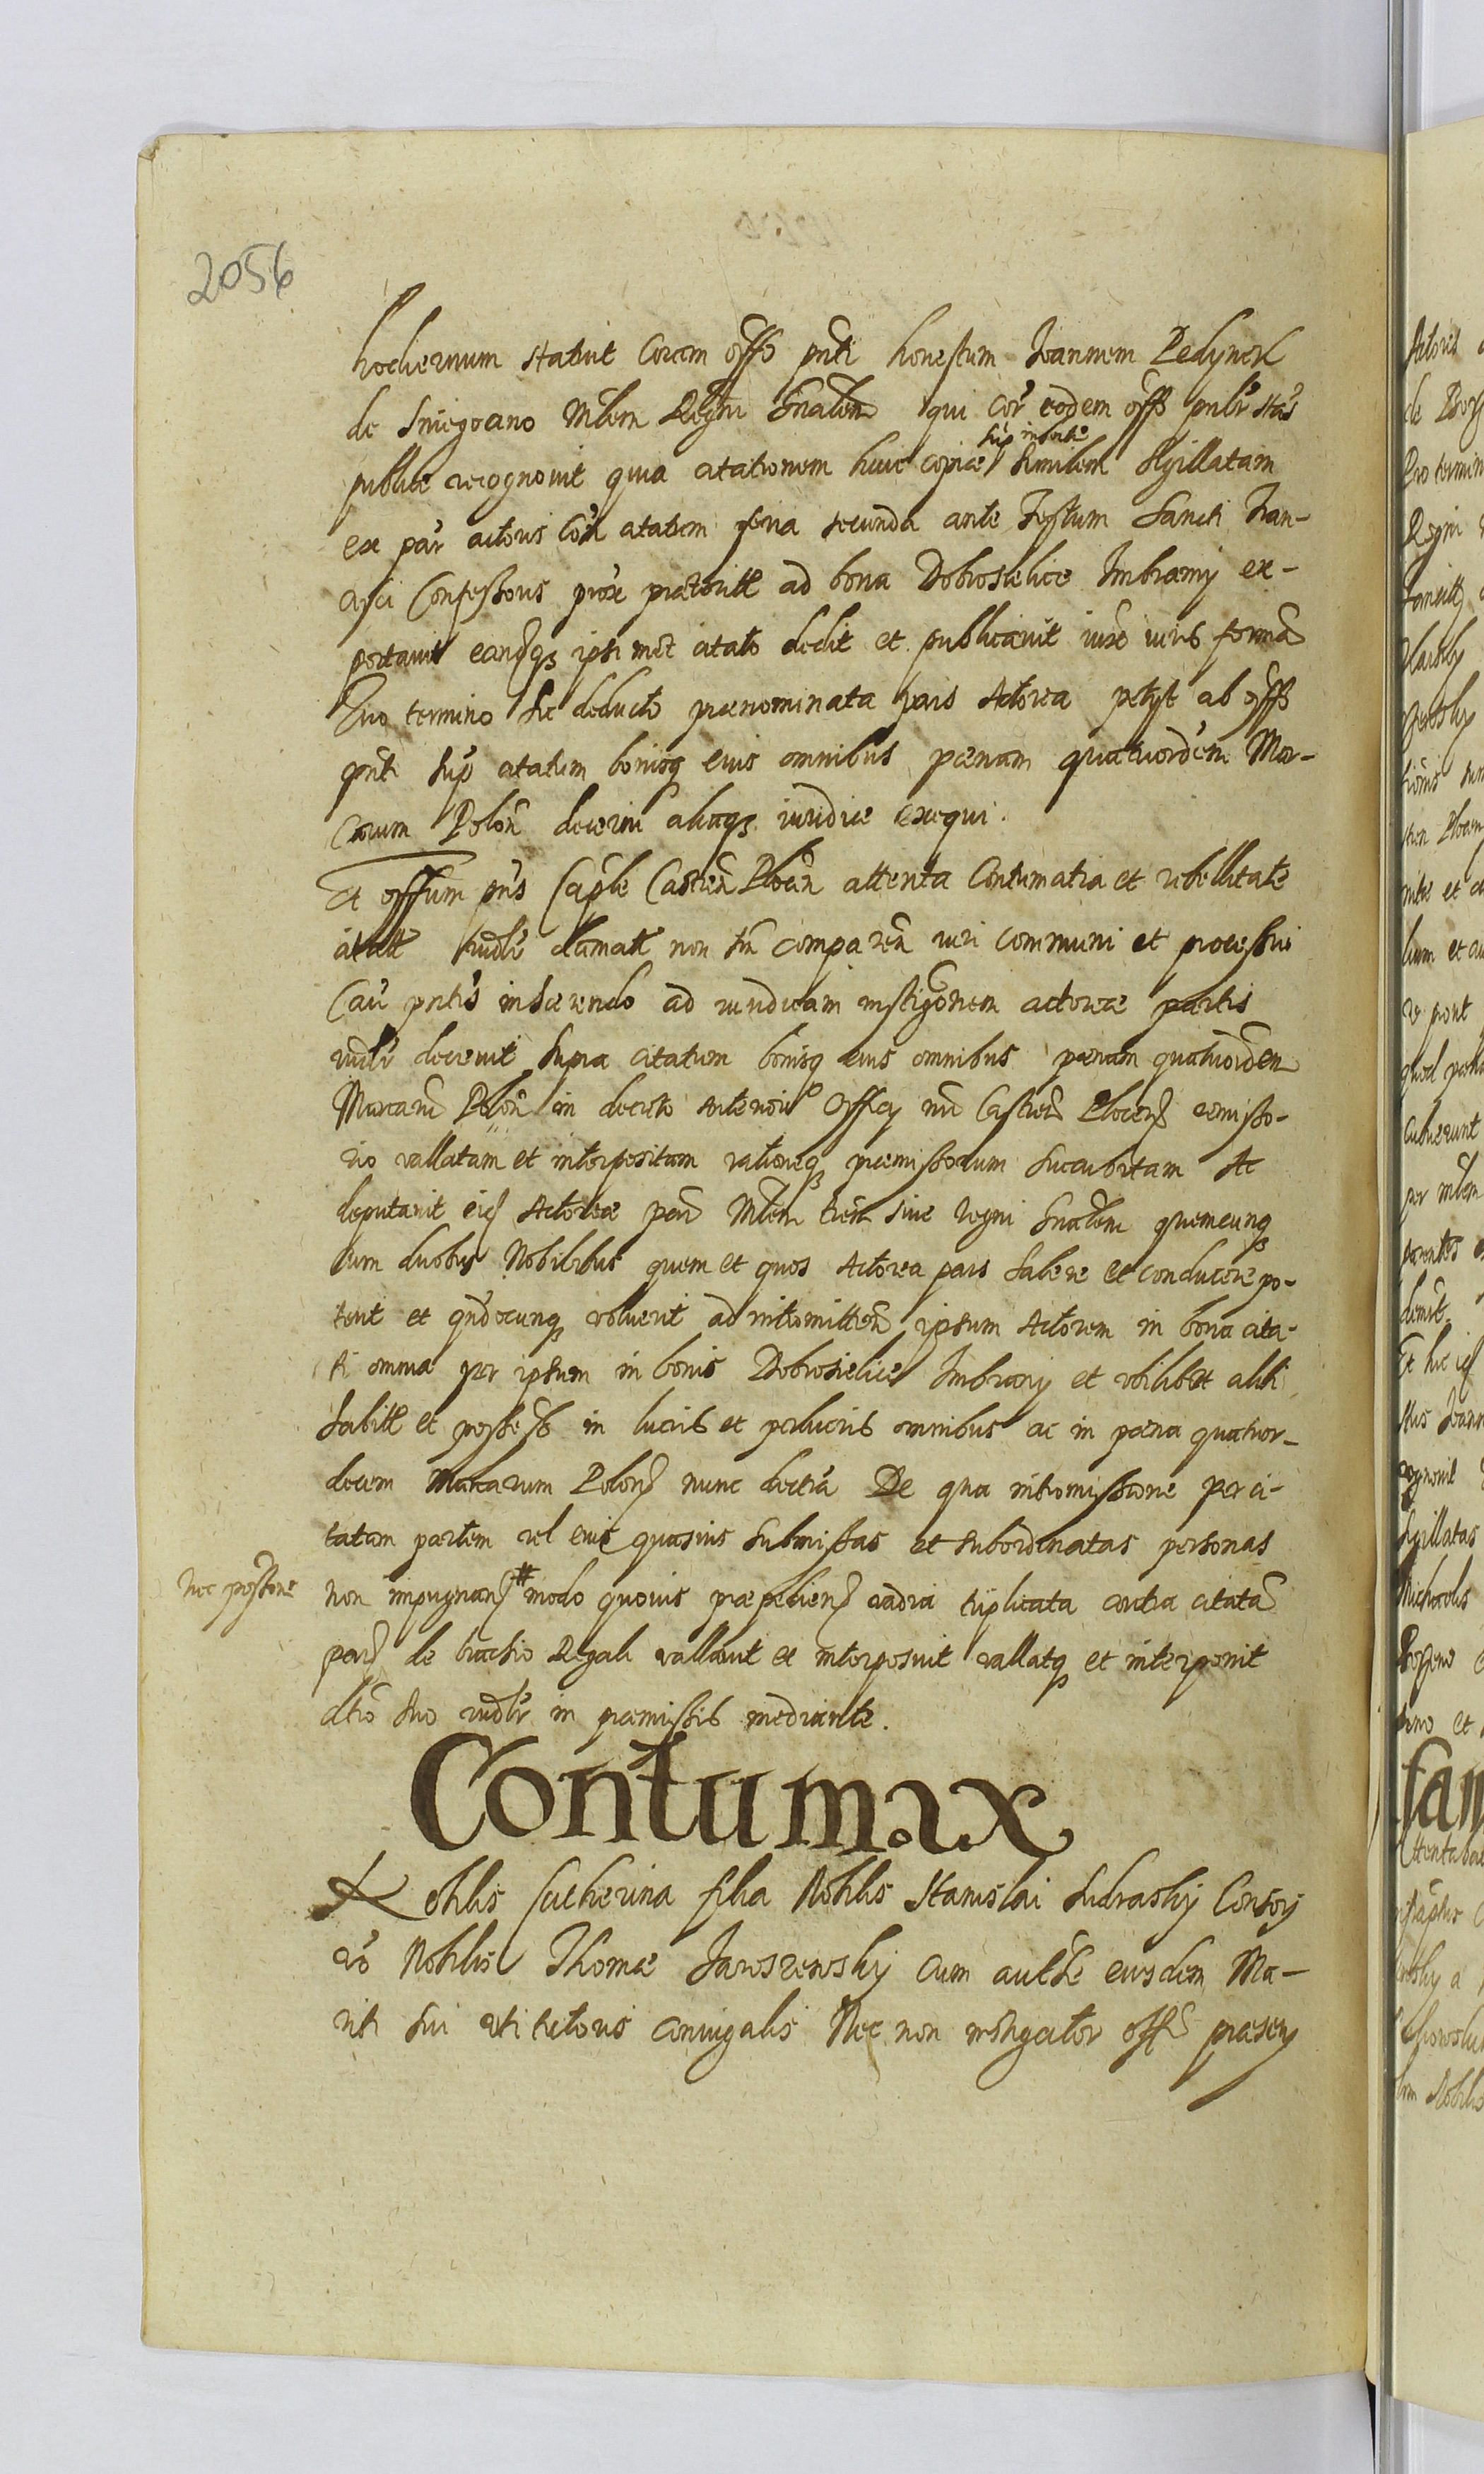 2056
hodiernum statuit Coram offo pnti honestum Joannem Pedynek
de Sniegocino Mlem Regni Gnalem qui cor eodem offo pnlr stas
sup inserte
publice recognovit quia citationem huic copiae similem sigillatam
ex par actoris Con citatum feria secunda ante Festum Sancti Fran-
cisci Confessoris prox praeteritt ad bona Dobrosielice Imbramy ex-
portavit eandqз ipsi met citato dedit et publicavit iuxt iuris formā
Quo termino sic deducto praenominata pars Actorea petyt ab offo
pnti sup citatum bonisqз eius omnibus paenam quatuordem Mar-
carum Polon decerni aliaqз iuridice exequi.
Et offium pns Caple Castren Plocen attenta Contumatia et rebellitate
citatt iudlr clamatt non tn comparen iuri communi et processui
Cau pntis inhaerendo ad iuridicam instigonem actoreae partis
iudlr decrevit supra citatum bonisqз eius omnibus paenam quatuordem
Marcaru Polon in decreto anteriori Officy nri Castren Plocen remisso-
rio vallatam et interpositam rationeqз praemissorum succubitam Ac
deputavit eid Actoreae parti Mlem trem sive regni Gnalem quemcunqз
cum duobus Nobilibus quem et quos Actorea pars habere et conducere po-
terit et qndocunqз voluerit ad intromitten ipsum Actorem in bona cita-
ti omnia per ipsum in bonis Dobrosielice Imbramy et ubilibet alibi
habitt et possess in lucris et perlucris omnibus ac in paena quatuor-
decem Marcarum Polon nunc decreta De qua intromissione per ci-
tatam partem vel eius quasvis submissas et subordinatas personas
nec possione
non impugnan # modo quovis praepedien vadia triplicata contra citatā
par de brachio Regali vallavit et interposuit vallatqз et interponit
dcto suo iudlr in praemissis mediante.
Contumax
Nobilis Catherina filia Nobilis Stanislai Sudrasky Consors
vo Nobilis Thomae Jaroszewsky cum authe eiusdem Ma-
riti sui uti tutoris coniugalis Nec non instigator offi praesens